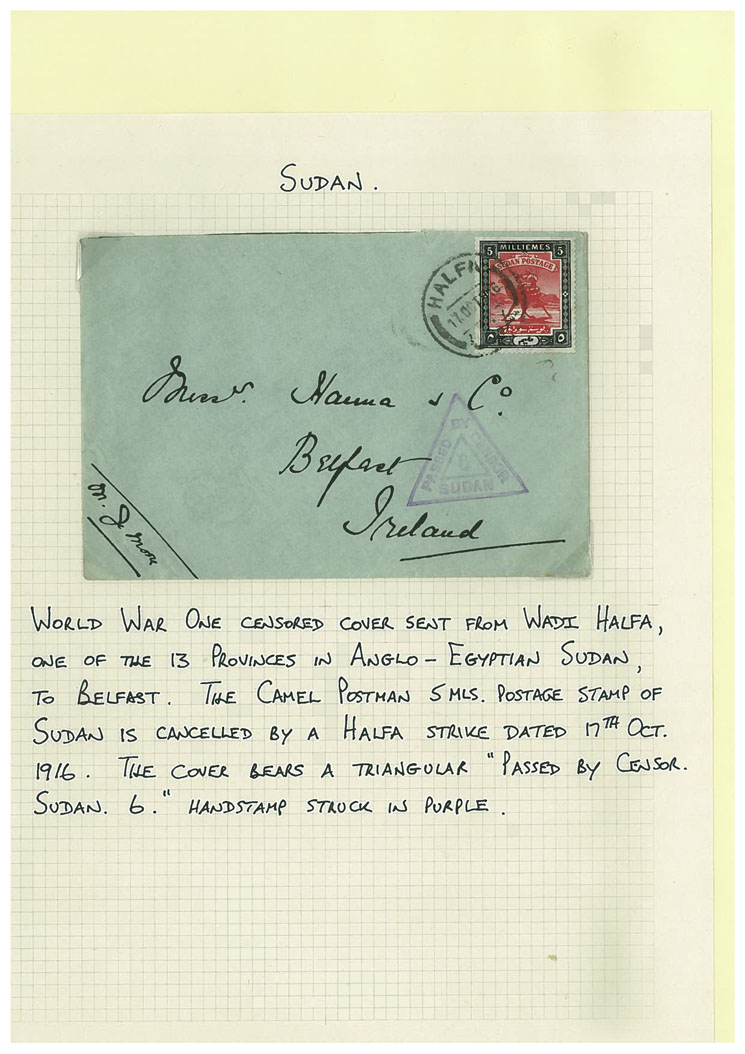 SUDAN.
5 MILLIEMES 5
SUDAN POSTAGE
HALFA
17.OCT
Messrs. Hanna & Co.
Belfast
Ireland
PASSED BY CENSOR
6
SUDAN
WORLD WAR ONE CENSORED COVER SENT FROM WADI HALFA,
ONE OF THE 13 PROVINCES IN ANGLO-EGYPTIAN SUDAN,
TO BELFAST. THE CAMEL POSTMAN 5 MLS. POSTAGE STAMP OF
SUDAN IS CANCELLED BY A HALFA STRIKE DATED 17TH OCT.
1916. THE COVER BEARS A TRIANGULAR "PASSED BY CENSOR.
SUDAN. 6." HANDSTAMP STRUCK IN PURPLE.